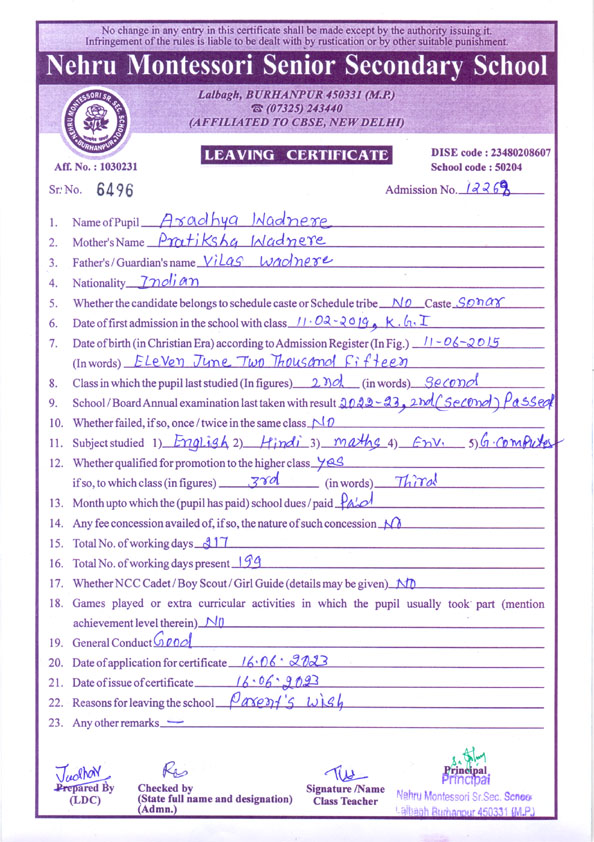 No change in any entry in this certificate shall be made except by the authority issuing it.
Infringement of the rules is liable to be dealt with by rustication or by other suitable punishment.
Nehru Montessori Senior Secondary School
Lalbagh, BURHANPUR 450331 (M.P.)
☎ (07325) 243440
(AFFILIATED TO CBSE, NEW DELHI)
NEHRU MONTESSORI SR. SEC. SCHOOL
BURHANPUR
LEAVING CERTIFICATE
DISE code : 23480208607
Aff. No. : 1030231 School code : 50204
Sr. No. 6496 Admission No. 12268
1. Name of Pupil Aradhya Wadnere
2. Mother's Name Pratiksha Wadnere
3. Father's / Guardian's name Vilas Wadnere
4. Nationality Indian
5. Whether the candidate belongs to schedule caste or Schedule tribe NO Caste Sonar
6. Date of first admission in the school with class 11-02-2019, K.G.I
7. Date of birth (in Christian Era) according to Admission Register (In Fig.) 11-06-2015
(In words) Eleven June Two Thousand Fifteen
8. Class in which the pupil last studied (In figures) 2nd (in words) Second
9. School / Board Annual examination last taken with result 2022-23, 2nd (Second) Passed
10. Whether failed, if so, once / twice in the same class NO
11. Subject studied 1) English 2) Hindi 3) maths 4) Env. 5) G.computer
12. Whether qualified for promotion to the higher class yes
if so, to which class (in figures) 3rd (in words) Third
13. Month upto which the (pupil has paid) school dues / paid Paid
14. Any fee concession availed of, if so, the nature of such concession NO
15. Total No. of working days 217
16. Total No. of working days present 199
17. Whether NCC Cadet / Boy Scout / Girl Guide (details may be given) NO
18. Games played or extra curricular activities in which the pupil usually took part (mention
achievement level therein) NO
19. General Conduct Good
20. Date of application for certificate 16.06.2023
21. Date of issue of certificate 16.06.2023
22. Reasons for leaving the school Parent's wish
23. Any other remarks —
Prepared By
(LDC)
Checked by
(State full name and designation)
(Admn.)
Signature /Name
Class Teacher
Principal
Principal
Nehru Montessori Sr.Sec. School
Lalbagh Burhanpur 450331 (M.P.)